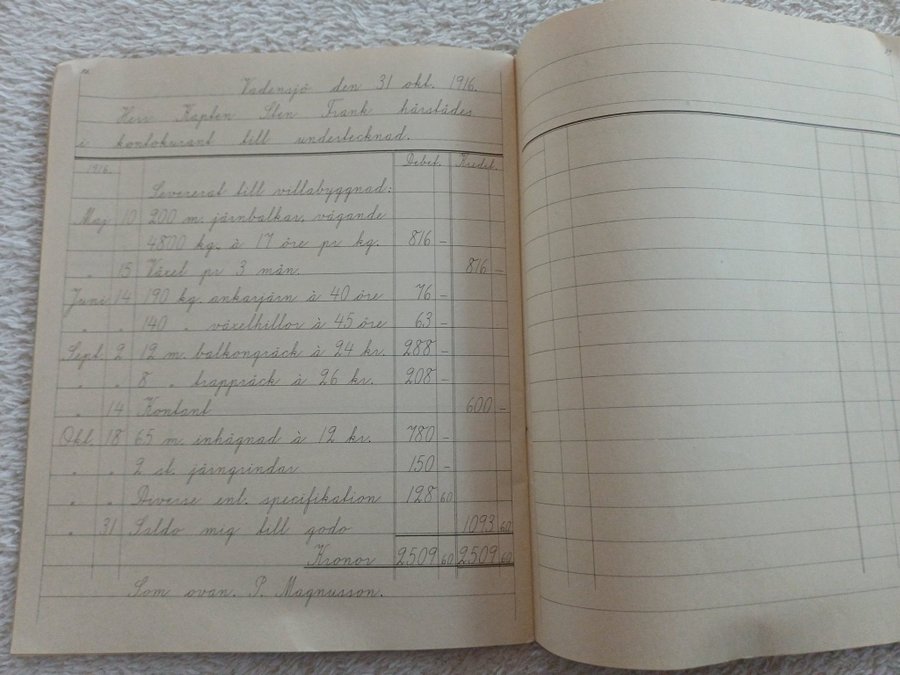 Vadensjö den 31 okt. 1916.
Herr Kapten Sten Frank härstädes
i kontokurant till undertecknad.
1916. Debet. Kredit.
Levererat till villabyggnad:
Maj 10 200 m. järnbalkar, vägande
4800 kg. à 17 öre pr kg. 816 –
" 15 Växel pr 3 mån. 816 –
Juni 14 190 kg. ankarjärn à 40 öre 76 –
" " 140 " växelhillor à 45 öre 63 –
Sept. 2 12 m. balkongräck à 24 kr. 288 –
" " 8 " trappräck à 26 kr. 208 –
" 14 Kontant 600 –
Okt. 18 65 m. inhägnad à 12 kr. 780 –
" " 2 st. järngrindar 150 –
" " Diverse enl. specifikation 128 60
" 31 Saldo mig till godo 1093 60
Kronor 2509 60 2509 60
Som ovan. P. Magnusson.